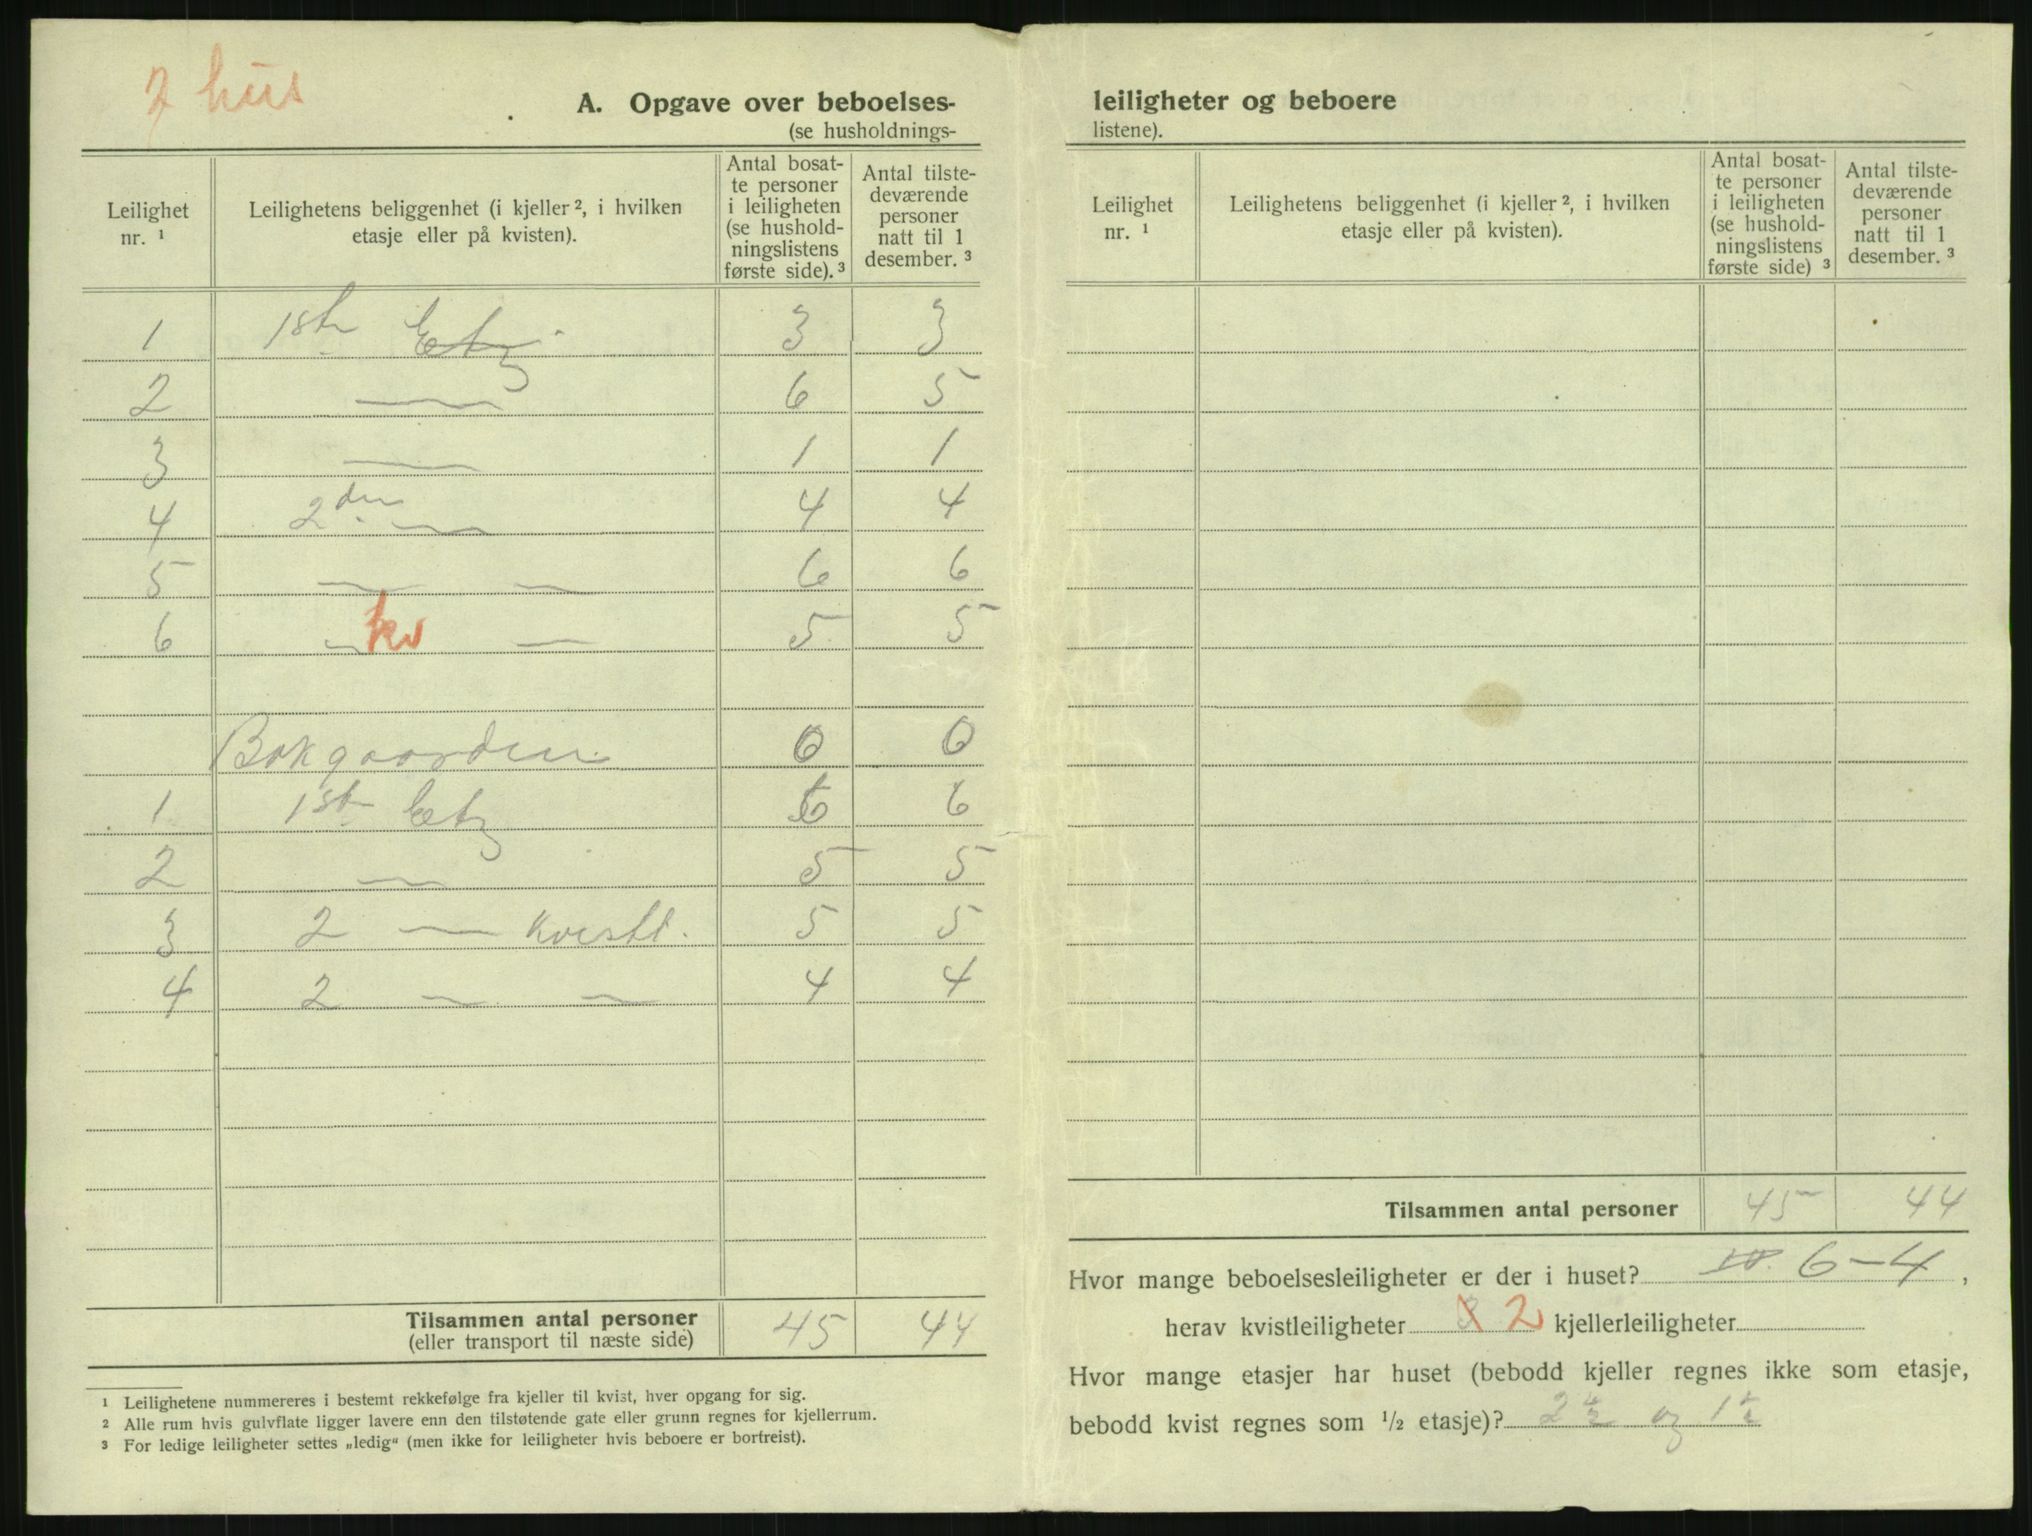 2 hus
A. Opgave over beboelses-
(se husholdnings-
Leilighet nr. ¹ | Leilighetens beliggenhet (i kjeller ², i hvilken etasje eller på kvisten). | Antal bosat- te personer i leiligheten (se hushold- ningslistens første side). ³ | Antal tilste- deværende personer natt til 1 desember. ³
1 1ste Etg. 3 3
2 — 6 5
3 — 1 1
4 2den — 4 4
5 — — 6 6
6 — kv — 5 5
Bakgaarden 0 0
1 1ste Etg 6 6
2 — 5 5
3 2 — kvistl. 5 5
4 2 — — 4 4
Tilsammen antal personer 45 44
(eller transport til næste side)
¹ Leilighetene nummereres i bestemt rekkefølge fra kjeller til kvist, hver opgang for sig.
² Alle rum hvis gulvflate ligger lavere enn den tilstøtende gate eller grunn regnes for kjellerrum.
³ For ledige leiligheter settes „ledig“ (men ikke for leiligheter hvis beboere er bortreist).
leiligheter og beboere
listene).
Leilighet nr. ¹ | Leilighetens beliggenhet (i kjeller ², i hvilken etasje eller på kvisten). | Antal bosat- te personer i leiligheten (se hushold- ningslistens første side) ³ | Antal tilste- deværende personer natt til 1 desember. ³
Tilsammen antal personer 45 44
Hvor mange beboelsesleiligheter er der i huset? 10. 6-4,
herav kvistleiligheter 2 kjellerleiligheter
Hvor mange etasjer har huset (bebodd kjeller regnes ikke som etasje,
bebodd kvist regnes som ½ etasje)? 2½ og 1½